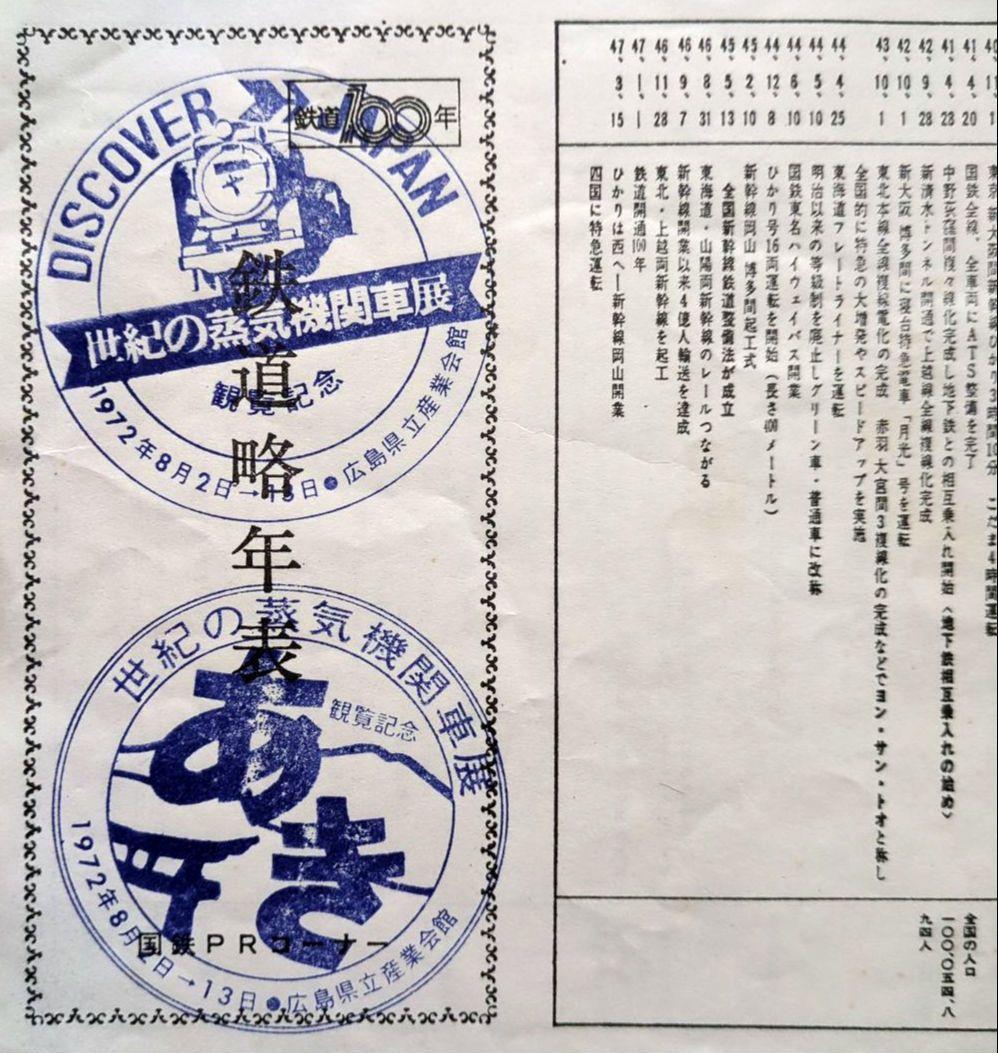 東京 新大阪間新幹線ひかり3時間10分 こだま4時間運転
41、4、20 国鉄全線、全車両にATS整備を完了
41、4、28 中野荻窪間複々線化完成し地下鉄との相互乗入れ開始〈地下鉄相互乗入れの始め〉
42、9、28 新清水トンネル開通で上越線全線複線化完成
42、10、1 新大阪 博多間に寝台特急電車「月光」号を運転
43、10、1 東北本線全線複線電化の完成 赤羽 大宮間3複線化の完成などでヨン・サン・トオと称し
全国的に特急の大増発やスピードアップを実施
44、4、25 東海道フレートライナーを運転
44、5、10 明治以来の等級制を廃止しグリーン車・普通車に改称
44、6、10 国鉄東名ハイウェイバス開業
44、12、8 ひかり号16両運転を開始（長さ400メートル）
45、2、10 新幹線岡山 博多間起工式
45、5、13 全国新幹線鉄道整備法が成立
46、8、31 東海道・山陽両新幹線のレールつながる
46、9、7 新幹線開業以来4億人輸送を達成
46、11、28 東北・上越両新幹線を起工
47、 鉄道開通100年
47、3、15 ひかりは西へ―新幹線岡山開業
四国に特急運転
全国の人口
一〇〇、〇五四、八
九四人
鉄道100年
鉄道略年表
国鉄PRコーナー
DISCOVER JAPAN
世紀の蒸気機関車展
観覧記念
1972年8月2日→13日●広島県立産業会館
世紀の蒸気機関車展
観覧記念
あき
1972年8月2日→13日●広島県立産業会館